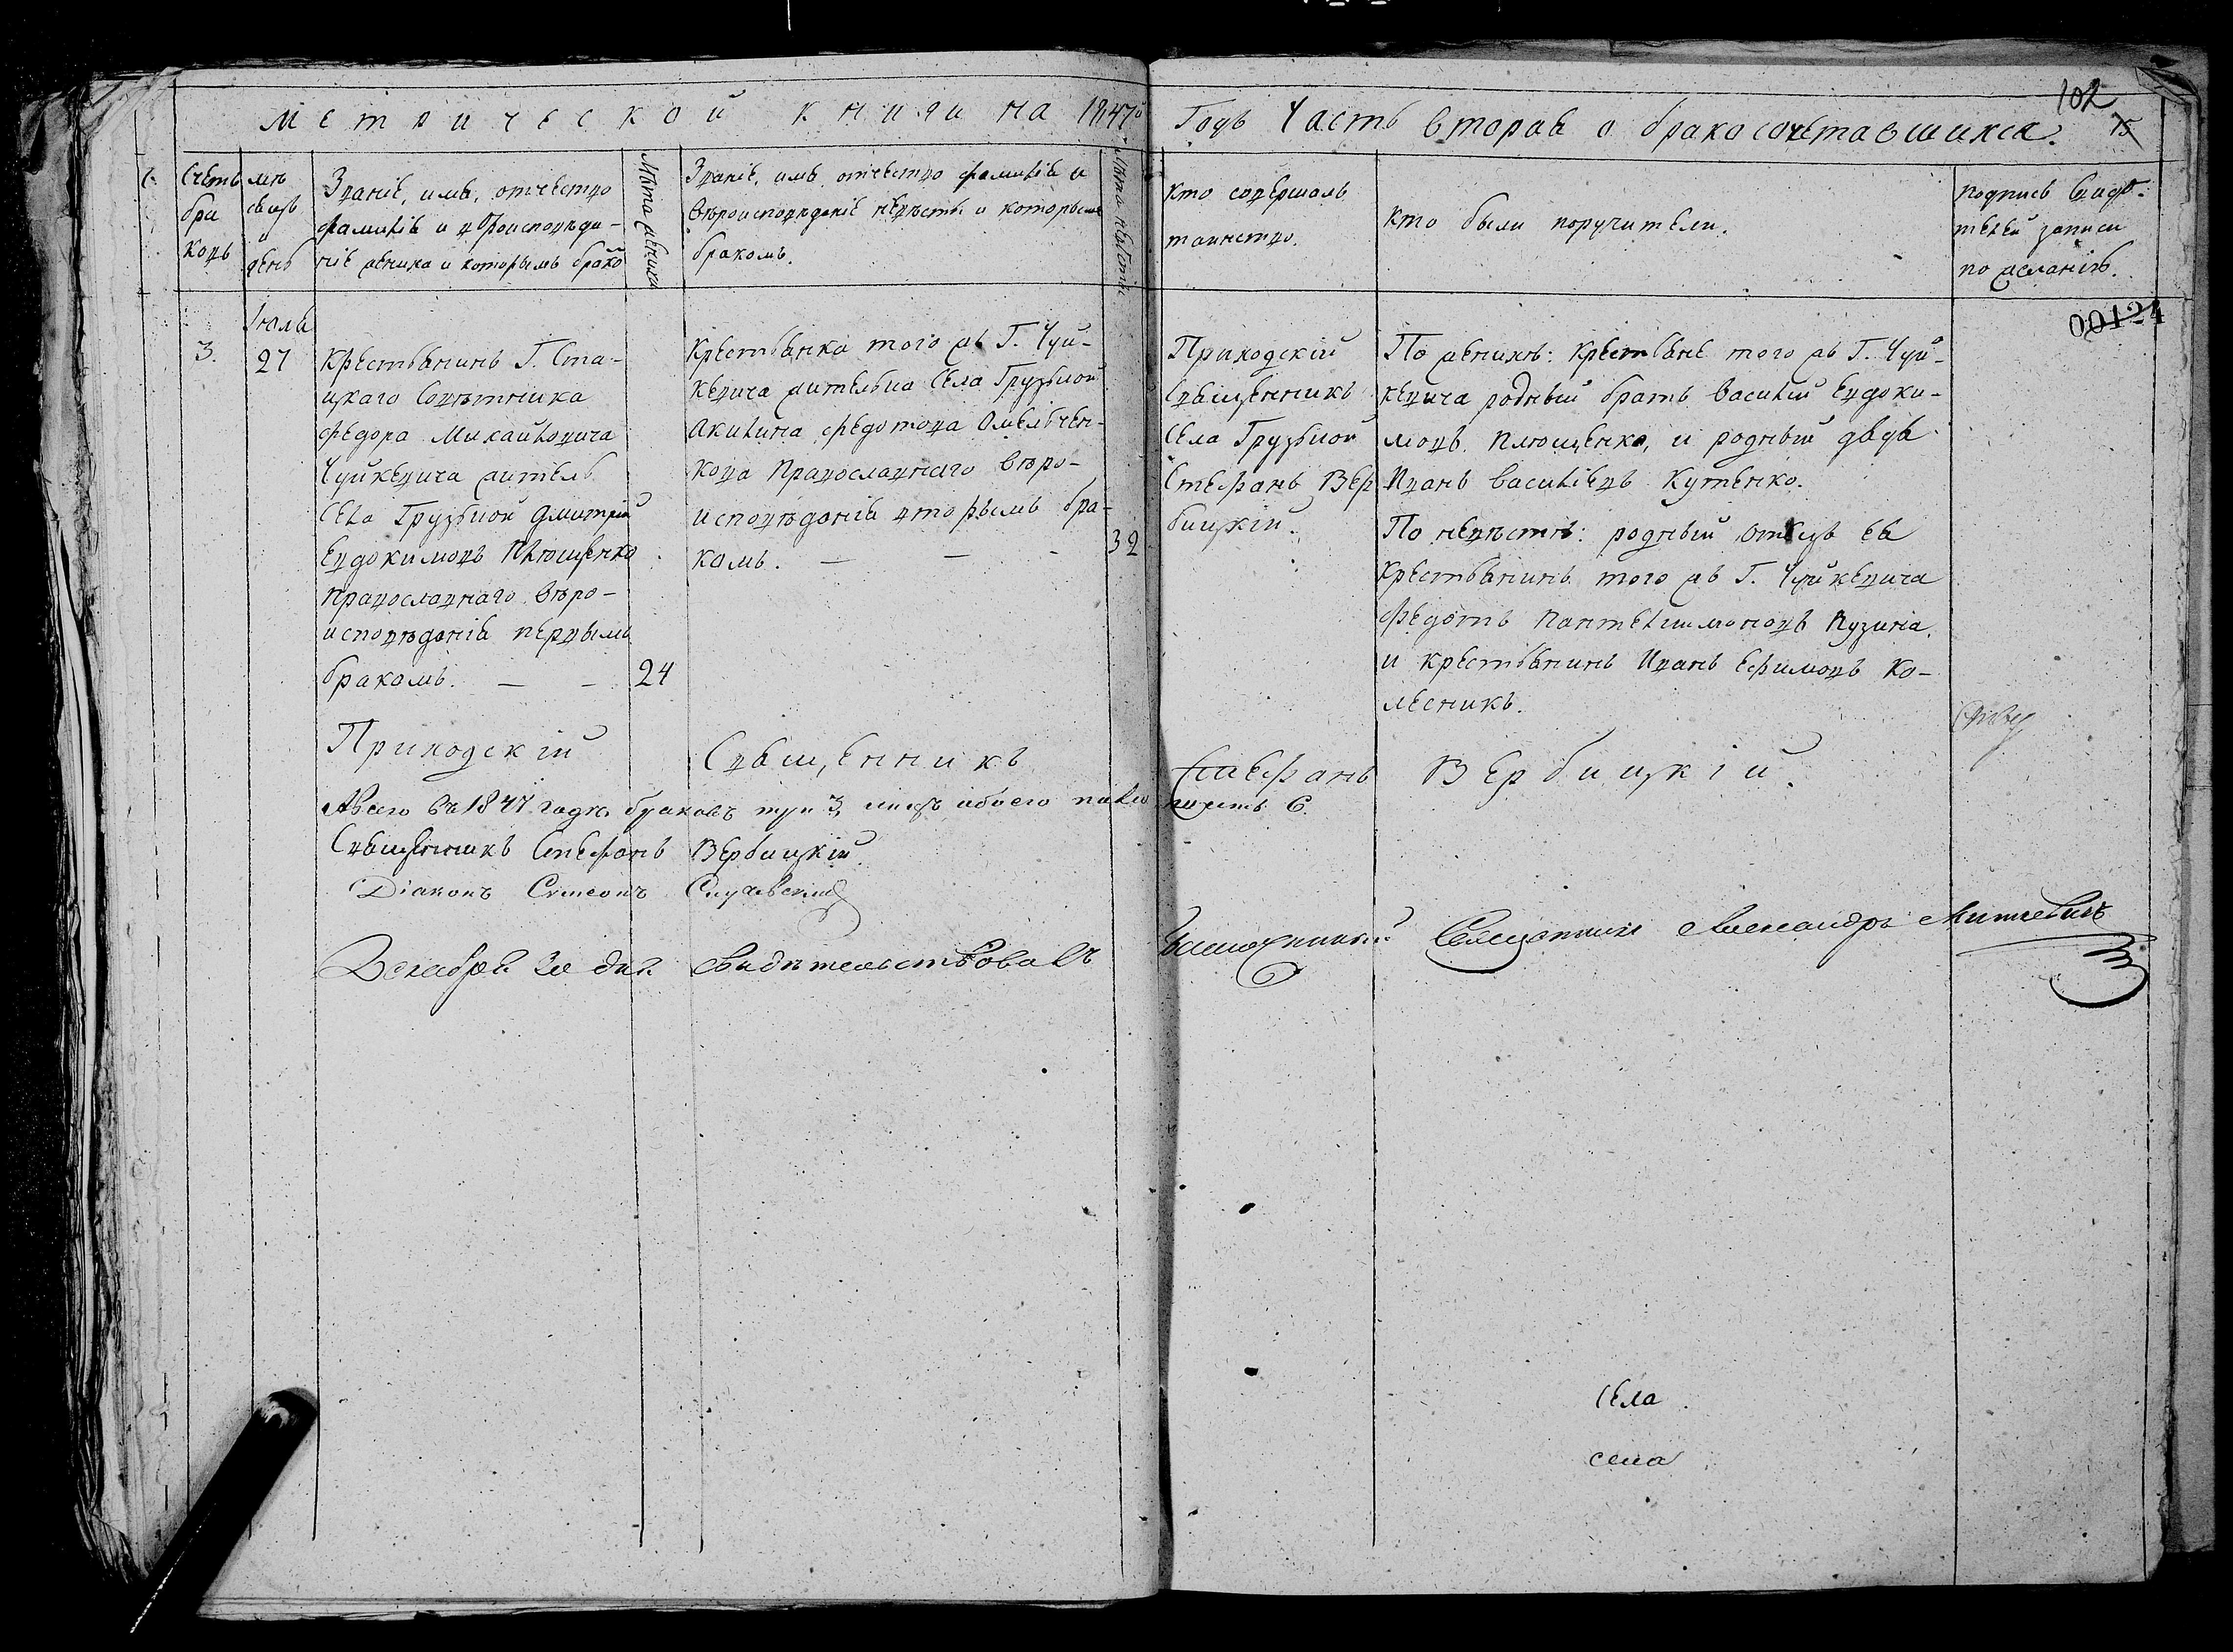 102
15
Метрической книги на 1847й Годъ Часть вторая о бракосочетавшихся.
Счетъ браковъ
мѣсяцъ и день
Званіе, имя, отчество
фамилія и вѣроисповѣда-
ніе жениха и которымъ брако
Лѣта жениха
Званіе, имя, отчество фамилія и
вѣроисповѣданіе невѣсты и которымъ
бракомъ.
Лѣта невѣсты
кто совершалъ
таинство.
кто были поручители.
подпись свидѣ-
телей записи
по желанію.
00124
3.
Іюля
27
Крестьянинъ Г. Ста-
цкаго Совѣтника
Федора Михайловича
Чуйкевича житель
Села Грузкой Дмитрій
Евдокимовъ Плющенко
православнаго вѣро-
исповѣданія первымъ
бракомъ. — — 24
Крестьянка того жъ Г. Чуй-
кевича жителька Села Грузкой
Акилина Федотова Омельчен-
кова Православнаго вѣро-
исповѣданія вторымъ бра-
комъ. — - 32
Приходскій
Священникъ
Села Грузкой
Стефанъ Вер
бицкій.
По женихѣ: Крестьяне того жъ Г. Чуй-
кевича родный братъ Василій Евдоки-
мовъ Плющенко, и родный дядя
Иванъ Василіевъ Кутенко.
По невѣстѣ: родный отецъ ея
Крестьянинъ того жъ Г. Чуйкевича
Федотъ Пантелимоновъ Пузина,
и крестьянинъ Иванъ Ефимовъ Ко-
лесникъ.
Приходскій Священникъ Стефанъ Вербицкій.
А всего въ 1847 годѣ браковъ три 3 лицъ обоего пола шесть 6.
Священникъ Стефанъ Вербицкій
Діаконъ Симеонъ
Декабря 30 дня свидѣтельствовалъ Благочинный Священникъ Александръ
Села
села